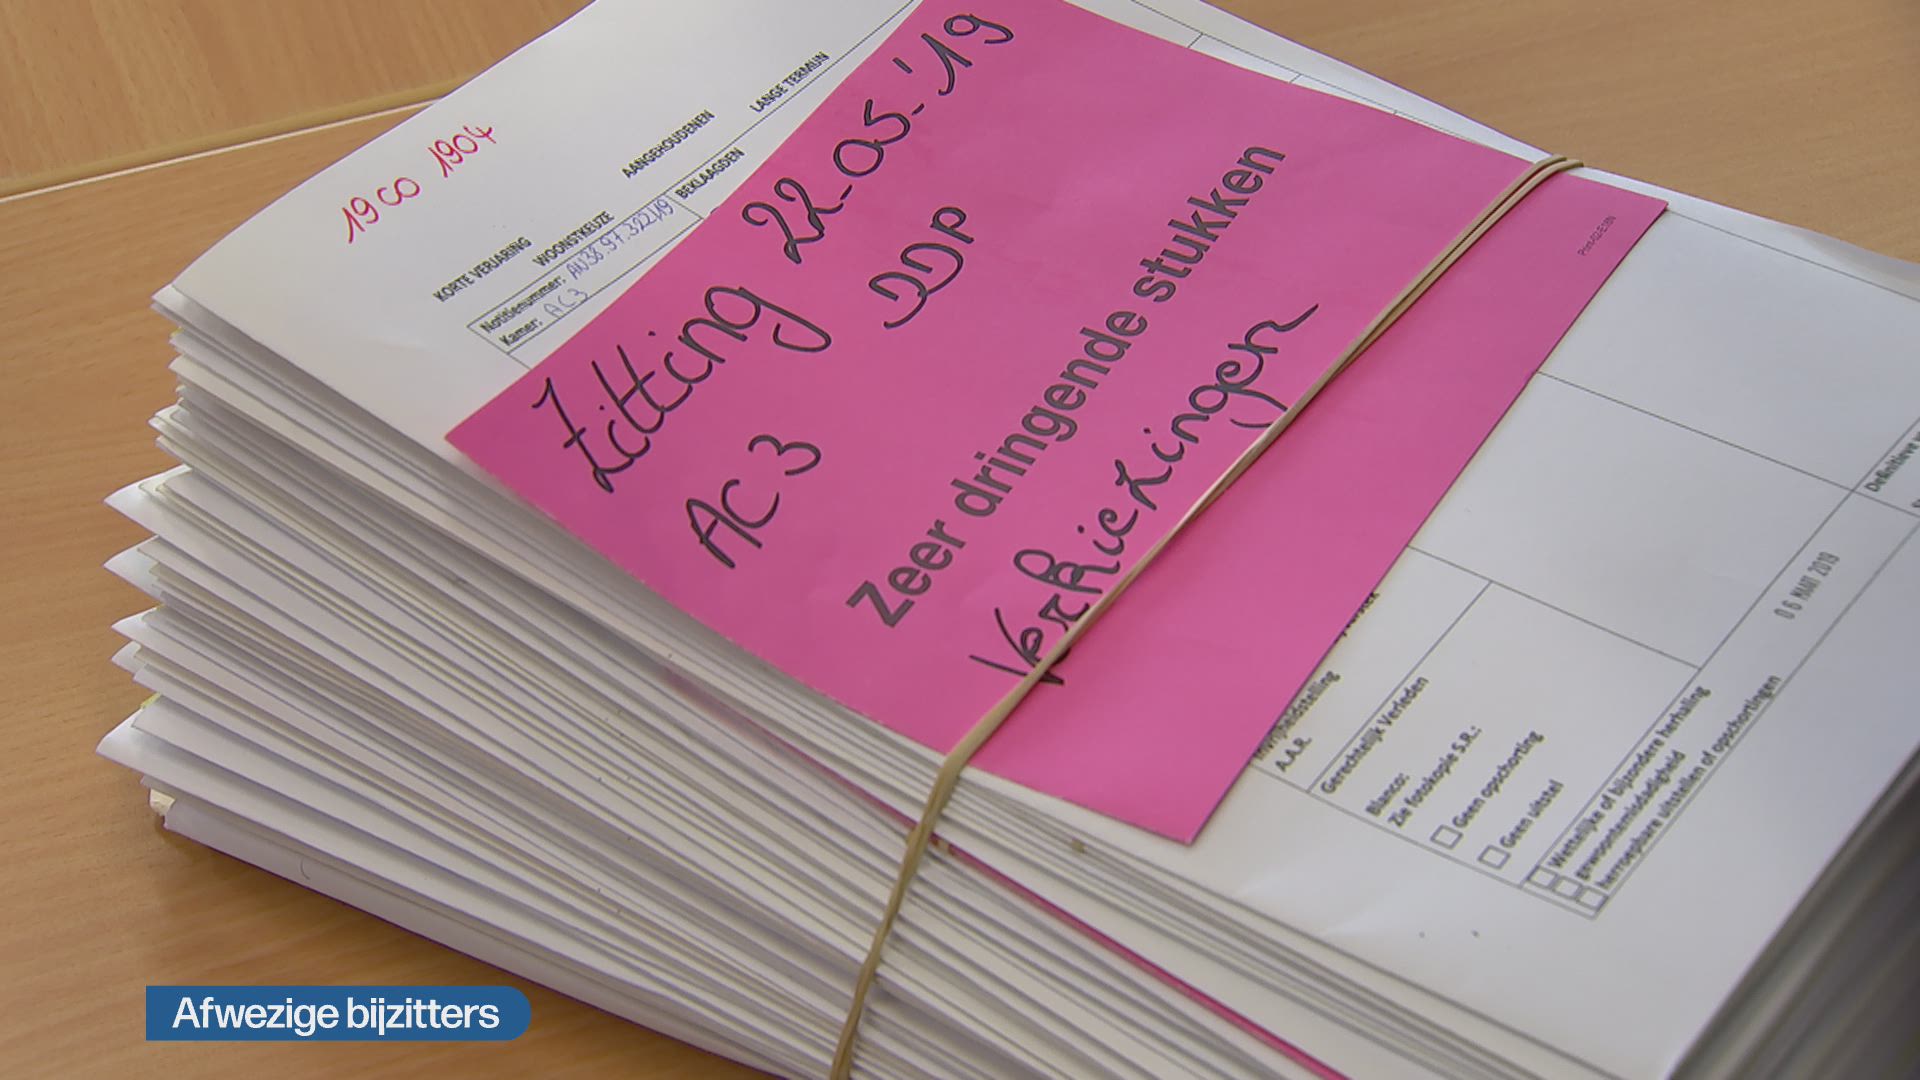 19 CO 1904
KORTE VERJARING
WOONSTKEUZE
AANGEHOUDENEN
LANGE TERMIJN
Notitienummer: AN38.97.322/19
BEKLAAGDEN
Kamer: AC3
Zitting 22-05-'19
AC3 DDP
Zeer dringende stukken
Verkiezingen
A.A.R.
Gerechtelijk Verleden
Blanco:
Zie fotokopie S.R.:
Geen opschorting
Geen uitstel
Wettelijke of bijzondere herhaling
gewoontemisdadigheid
herroepbare uitstellen of opschortingen
06 MAART 2019
Definitieve
Afwezige bijzitters